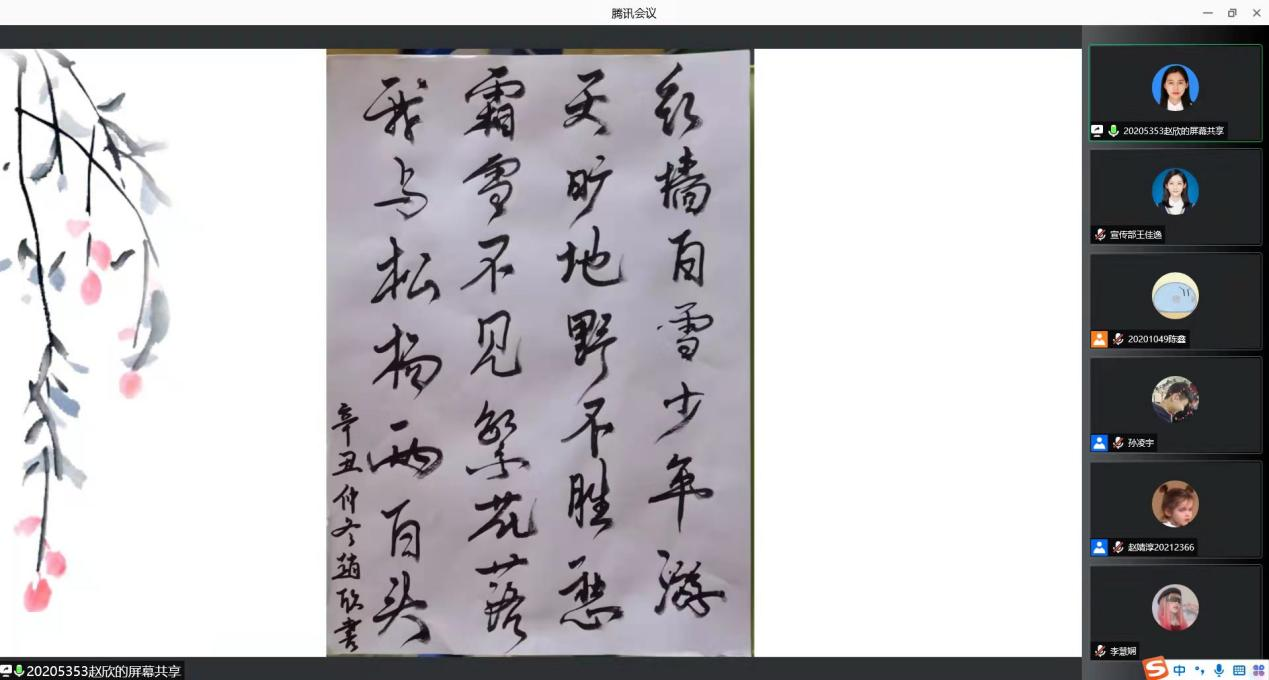 腾讯会议
红墙白雪少年游
天旷地野不胜愁
霜雪不见繁花落
我与松杨两白头
辛丑仲冬趙欣書
20205353赵欣的屏幕共享
宣传部王佳逸
20201049陈鑫
孙凌宇
赵婧淳20212366
李慧娴
20205353赵欣的屏幕共享
中